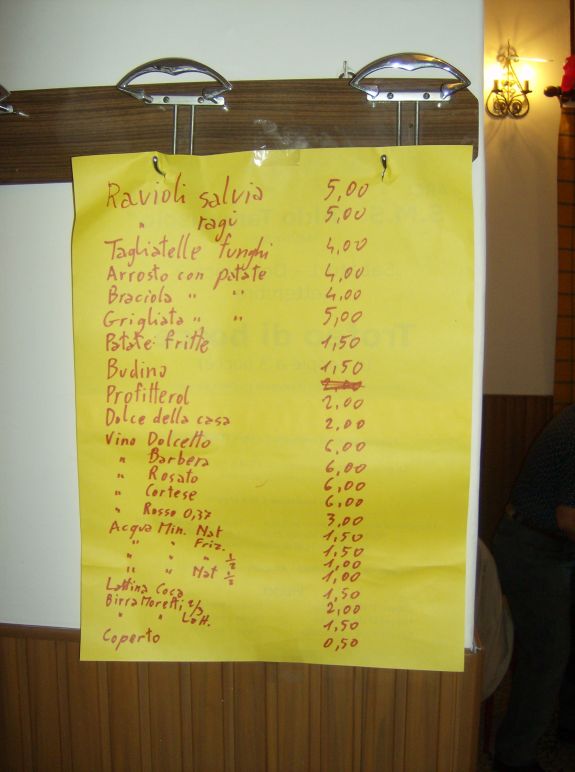 Ravioli salvia 5,00
" ragù 5,00
Tagliatelle funghi 4,00
Arrosto con patate 4,00
Braciola " " 4,00
Grigliata " " 5,00
Patate fritte 1,50
Budino 1,50
2,00
Profitterol 2,00
Dolce della casa 2,00
Vino Dolcetto 6,00
" Barbera 6,00
" Rosato 6,00
" Cortese 6,00
" Rosso 0,37 3,00
Acqua Min. Nat 1,50
" " Friz. 1,50
" " " 1/2 1,00
" " Nat 1/2 1,00
Lattina Coca 1,50
Birra Moretti 2/3 2,00
" " Latt. 1,50
Coperto 0,50